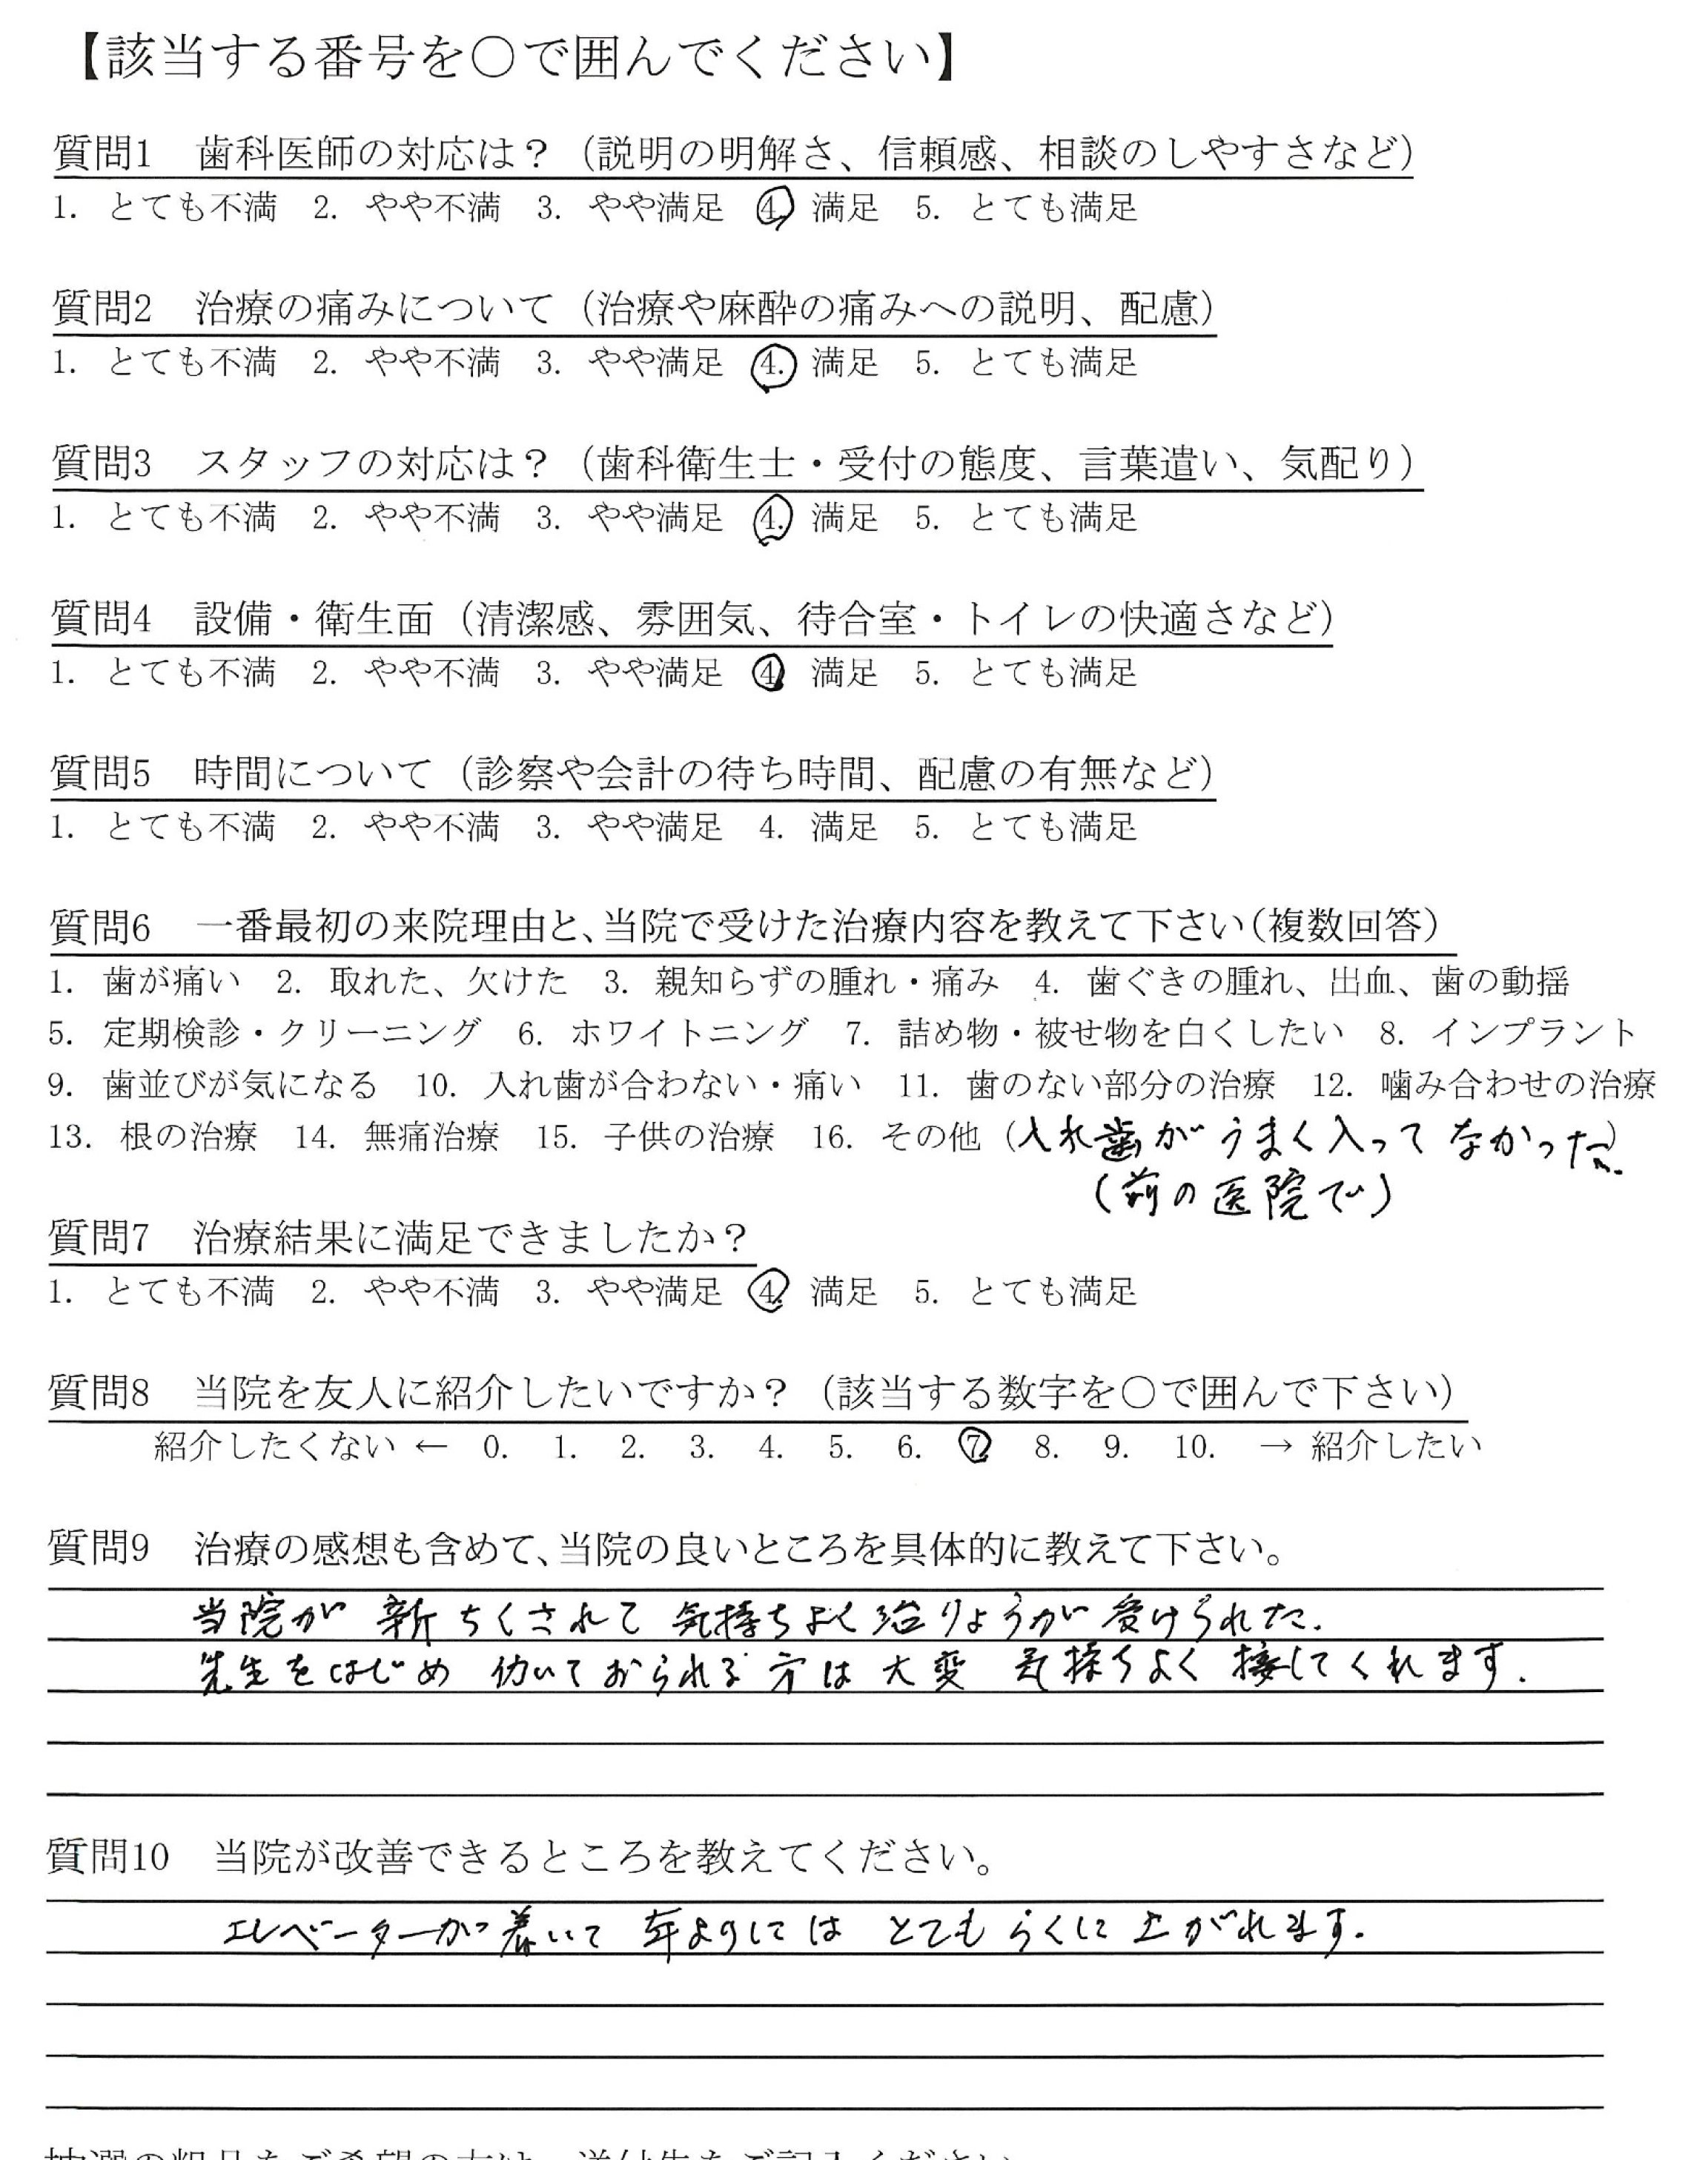 【該当する番号を○で囲んでください】
質問1　歯科医師の対応は？（説明の明解さ、信頼感、相談のしやすさなど）
1. とても不満　2. やや不満　3. やや満足　4. 満足　5. とても満足
質問2　治療の痛みについて（治療や麻酔の痛みへの説明、配慮）
1. とても不満　2. やや不満　3. やや満足　4. 満足　5. とても満足
質問3　スタッフの対応は？（歯科衛生士・受付の態度、言葉遣い、気配り）
1. とても不満　2. やや不満　3. やや満足　4. 満足　5. とても満足
質問4　設備・衛生面（清潔感、雰囲気、待合室・トイレの快適さなど）
1. とても不満　2. やや不満　3. やや満足　4. 満足　5. とても満足
質問5　時間について（診察や会計の待ち時間、配慮の有無など）
1. とても不満　2. やや不満　3. やや満足　4. 満足　5. とても満足
質問6　一番最初の来院理由と、当院で受けた治療内容を教えて下さい（複数回答）
1. 歯が痛い　2. 取れた、欠けた　3. 親知らずの腫れ・痛み　4. 歯ぐきの腫れ、出血、歯の動揺
5. 定期検診・クリーニング　6. ホワイトニング　7. 詰め物・被せ物を白くしたい　8. インプラント
9. 歯並びが気になる　10. 入れ歯が合わない・痛い　11. 歯のない部分の治療　12. 噛み合わせの治療
13. 根の治療　14. 無痛治療　15. 子供の治療　16. その他（入れ歯がうまく入ってなかった）
（前の医院で）
質問7　治療結果に満足できましたか？
1. とても不満　2. やや不満　3. やや満足　4. 満足　5. とても満足
質問8　当院を友人に紹介したいですか？（該当する数字を○で囲んで下さい）
紹介したくない ← 0. 1. 2. 3. 4. 5. 6. 7. 8. 9. 10. → 紹介したい
質問9　治療の感想も含めて、当院の良いところを具体的に教えて下さい。
当院が 新ちくされて 気持ちよく治りょうが 受けられた.
先生をはじめ 働いておられる方は大変 気持ちよく 接してくれます.
質問10　当院が改善できるところを教えてください。
エレベーターがつ着いて 年よりには とてもらくに上がれます.
抽選の粗品をご希望の方は、送付先をご記入ください